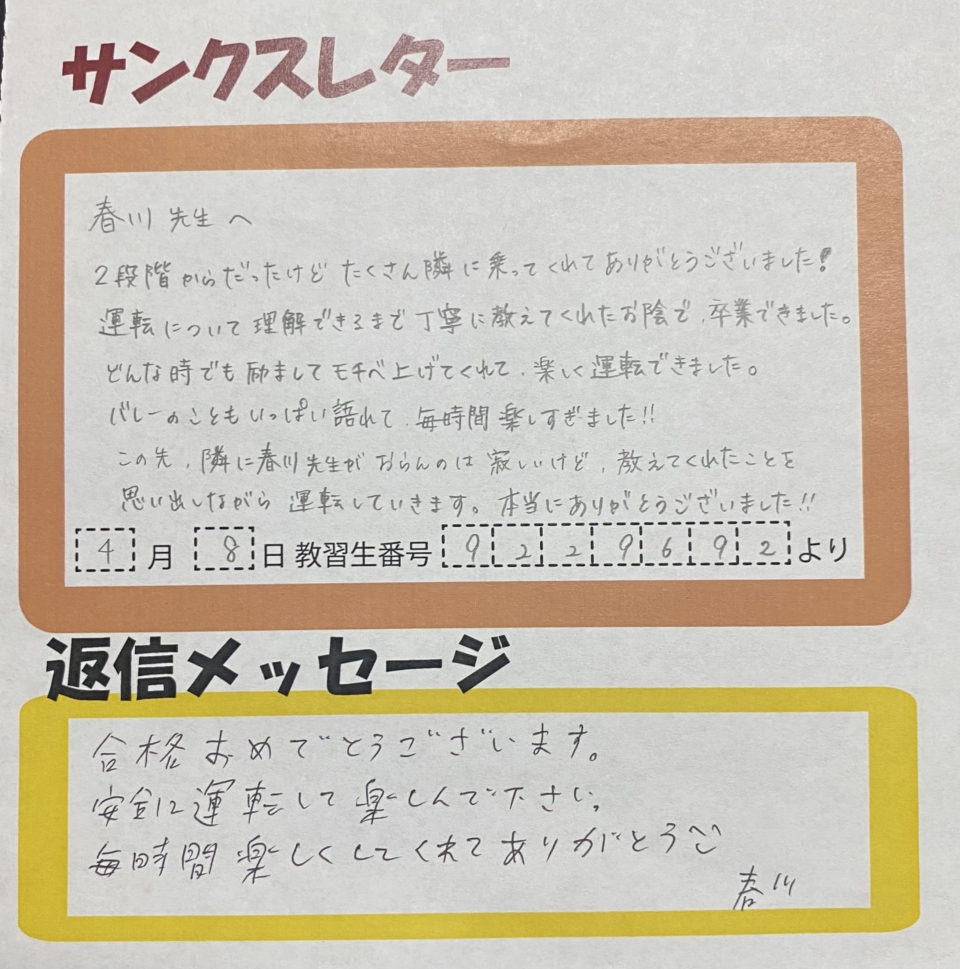 サンクスレター
春川先生へ
2段階からだったけど たくさん隣に乗ってくれてありがとうございました!
運転について理解できるまで丁寧に教えてくれたお陰で、卒業できました。
どんな時でも励ましてモチベ上げてくれて、楽しく運転できました。
バレーのこともいっぱい語れて、毎時間楽しすぎました!!
この先、隣に春川先生がおらんのは寂しいけど、教えてくれたことを
思い出しながら運転していきます。本当にありがとうございました!!
4月8日 教習生番号 9229692 より
返信メッセージ
合格おめでとうございます。
安全に運転して楽しんで下さい。
毎時間楽しくしてくれてありがとう
春川